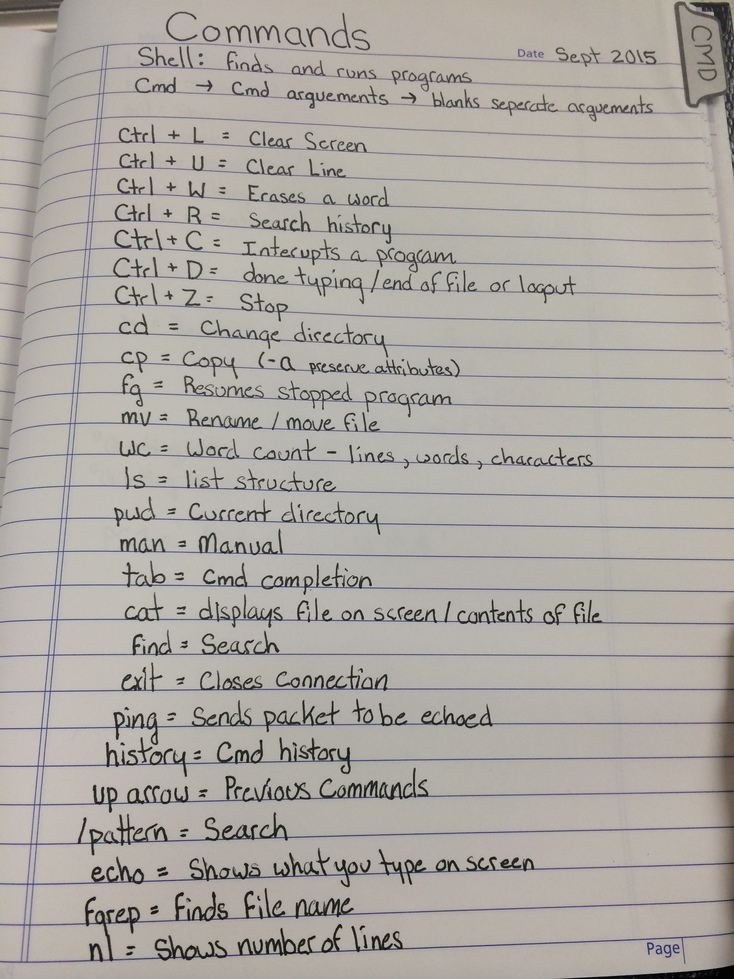 Commands
CMD
Date Sept 2015
Shell: finds and runs programs
Cmd → Cmd arguements → blanks seperate arguements
Ctrl + L = Clear Screen
Ctrl + U = Clear Line
Ctrl + W = Erases a word
Ctrl + R = Search history
Ctrl + C = Interupts a program
Ctrl + D = done typing/end of file or logout
Ctrl + Z = Stop
cd = Change directory
cp = Copy (-a preserve attributes)
fg = Resumes stopped program
mv = Rename / move file
wc = Word count - lines, words, characters
ls = list structure
pwd = Current directory
man = Manual
tab = Cmd completion
cat = displays file on screen / contents of file
find = Search
exit = Closes Connection
ping = Sends packet to be echoed
history = Cmd history
up arrow = Previous Commands
/pattern = Search
echo = Shows what you type on screen
fgrep = finds file name
nl = Shows number of lines
Page